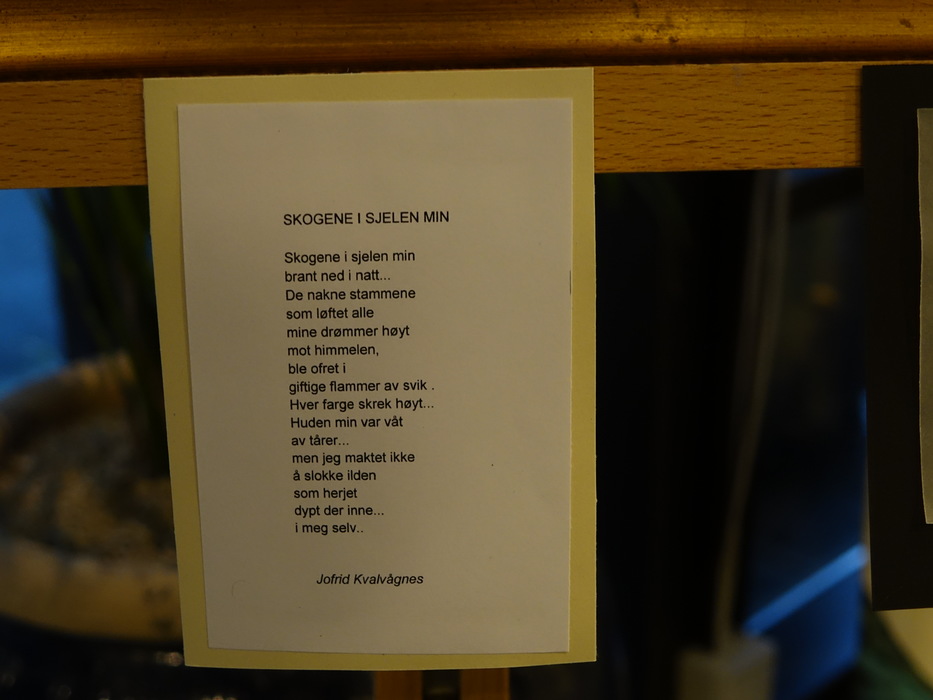 SKOGENE I SJELEN MIN
Skogene i sjelen min
brant ned i natt...
De nakne stammene
som løftet alle
mine drømmer høyt
mot himmelen,
ble ofret i
giftige flammer av svik .
Hver farge skrek høyt...
Huden min var våt
av tårer...
men jeg maktet ikke
å slokke ilden
som herjet
dypt der inne...
i meg selv..
Jofrid Kvalvågnes